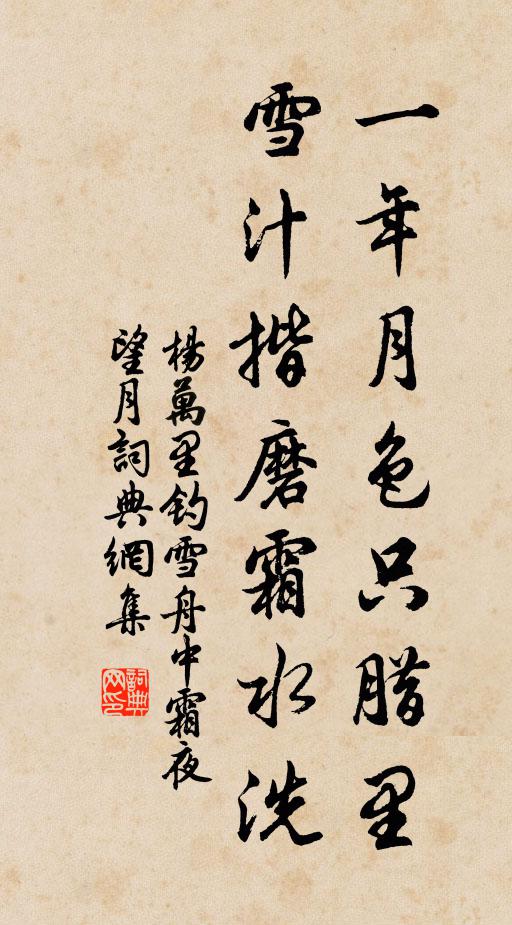 一年月色只腊里
雪汁揩磨霜水洗
楊萬里釣雪舟中霜夜
望月詞典網集
詞典
网印